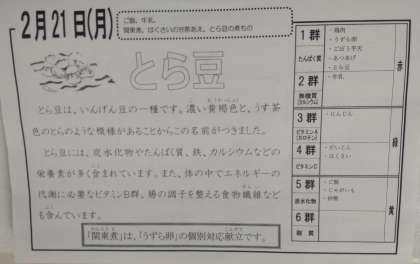 2月21日(月)
ご飯、牛乳、
関東煮、はくさいの甘酢あえ、とら豆の煮もの
とら豆
とら豆は、いんげん豆の一種です。濃い黄褐色と、うす茶
色のとらのような模様があることからこの名前がつきました。
とら豆には、炭水化物やたんぱく質、鉄、カルシウムなどの
栄養素が多く含まれています。また、体の中でエネルギーの
代謝に必要なビタミンB群、腸の調子を整える食物繊維なども
も含んでいます。
「関東煮」は、「うずら卵」の個別対応献立です。
1群
たんぱく質
・鶏肉
・うずら卵
・ごぼう平天
・あつあげ
・とら豆
2群
無機質
(カルシウム)
・牛乳
赤
3群
ビタミンA
(カロテン)
・にんじん
4群
ビタミンC
・だいこん
・はくさい
緑
5群
炭水化物
・ご飯
・じゃがいも
・砂糖
6群
脂質
黄